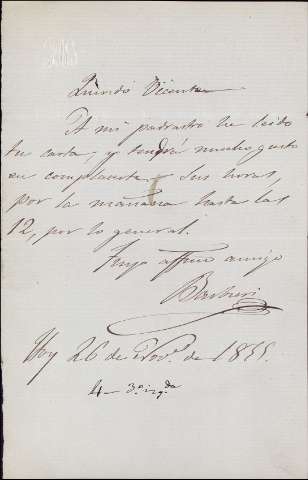 Querido Vicente
A mi padrastro he leido
tu carta, y tendrá mucho gusto
en complacerte. Sus horas,
por la mañana hasta las
12, por lo general.
Tuyo affmo amigo
Barbieri
Hoy 26 de Nov.e de 18
4 - 3º izqda